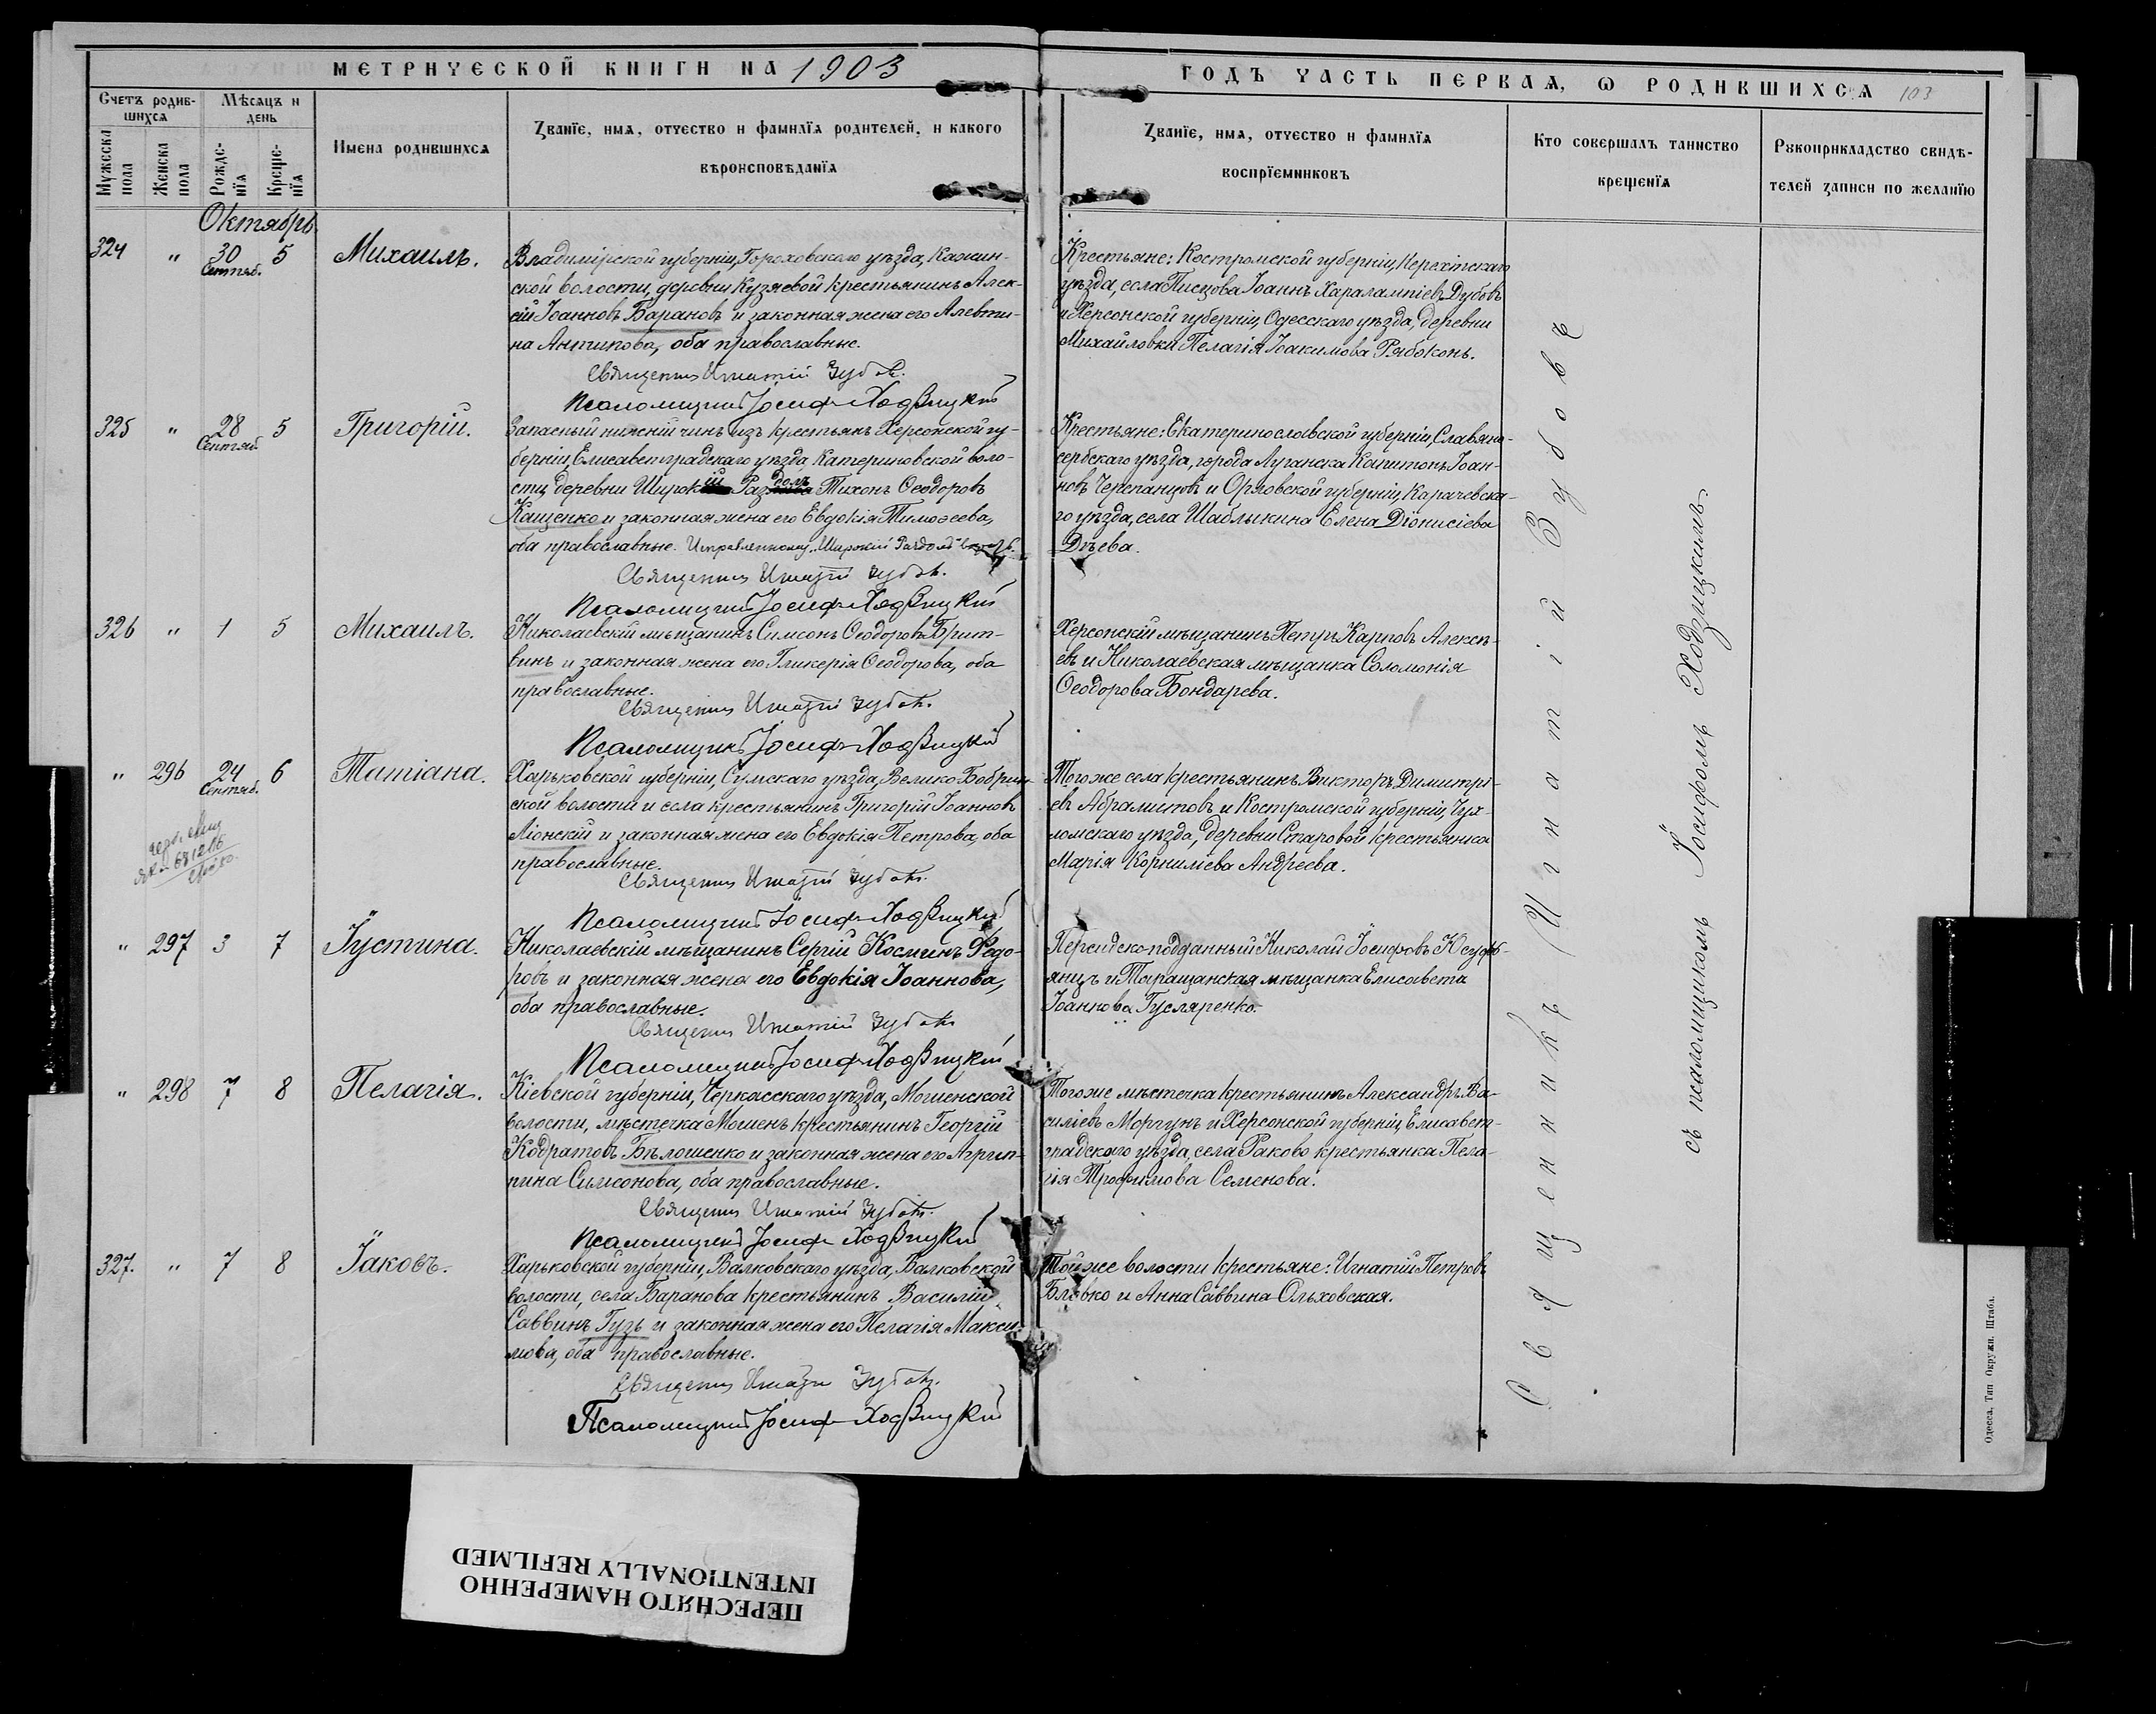 МЕТРИЧЕСКОЙ КНИГИ НА 1903
ГОДЪ ЧАСТЬ ПЕРВАЯ, Ѡ РОДИВШИХСЯ 103
Счетъ родив-
шихся
Мѣсяцъ и
день
Мужеска
пола
Женска
пола
Рожде-
нїя
Креще-
нїя
Имена родившихся
Званїе, имя, отчество и фамилїя родителей, и какого
вѣроисповѣданїя
Званїе, имя, отчество и фамилїя
воспрїемниковъ
Кто совершалъ таинство
крещенїя
Рукоприкладство свидѣ-
телей записи по желанїю
Октябрь
324 " 30 5 Михаилъ.
Сентяб.
Владимірской губерніи, Гороховскаго уѣзда, Кажин-
ской волости, деревни Кузяевой крестьянинъ Алек-
сій Іоанновъ Барановъ и законная жена его Алевти-
на Антипова, оба православные.
Священникъ Игнатій Зубовъ.
Псаломщикъ Іосифъ Ходзицкій
Крестьяне: Костромской губерніи, Нерехтскаго
уѣзда, села Писцова Іоаннъ Харалампіевъ Дубовъ
и Херсонской губерніи, Одесскаго уѣзда, деревни
Михайловки Пелагія Іоакимова Рябоконь.
325 " 28 5 Григорій.
Сентяб.
Запасный нижній чинъ изъ крестьянъ Херсонской гу-
берніи, Елисаветградскаго уѣзда, Катериновской воло-
сти, деревни Широкій Раздолъ Тихонъ Ѳеодоровъ
Кащенко и законная жена его Евдокія Тимоѳеева,
оба православные. Исправленному "Широкій Раздолъ" вѣрить.
Священникъ Игнатій Зубовъ.
Псаломщикъ Іосифъ Ходзицкій
Крестьяне: Екатеринославской губерніи, Славяно-
сербскаго уѣзда, города Луганска Капитонъ Іоан-
новъ Черепанцовъ и Орловской губерніи, Карачевска-
го уѣзда, села Шаблыкина Елена Діонисіева
Дѣева.
326 " 1 5 Михаилъ.
Николаевскій мѣщанинъ Симеонъ Ѳеодоровъ Брит-
винъ и законная жена его Гликерія Ѳеодорова, оба
православные.
Священникъ Игнатій Зубовъ.
Псаломщикъ Іосифъ Ходзицкій
Херсонскій мѣщанинъ Петръ Карповъ Алексѣ-
евъ и Николаевская мѣщанка Соломонія
Ѳеодорова Бондарева.
" 296 24 6 Татіана.
Сентяб.
Харьковской губерніи, Сумскаго уѣзда, Велико-Бобрик-
ской волости и села крестьянинъ Григорій Іоанновъ
Ліонскій и законная жена его Евдокія Петрова, оба
православные.
Священникъ Игнатій Зубовъ.
Псаломщикъ Іосифъ Ходзицкій
Того же села крестьянинъ Викторъ Димитрі-
евъ Абрамитовъ и Костромской губерніи, Чух-
ломскаго уѣзда, деревни Старовой крестьянка
Марія Корниліева Андреева.
" 297 3 7 Іустина.
Николаевскій мѣщанинъ Сергій Космичъ Федо-
ровъ и законная жена его Евдокія Іоаннова,
оба православные.
Священникъ Игнатій Зубовъ
Псаломщикъ Іосифъ Ходзицкій
Персидско-подданный Николай Іосифовъ Юсуфъ-
янцъ и Таращанская мѣщанка Елисавета
Іоаннова Гусляренко.
" 298 7 8 Пелагія.
Кіевской губерніи, Черкасскаго уѣзда, Мошенской
волости, мѣстечка Мошенъ крестьянинъ Георгій
Кодратовъ Бѣлошенко и законная жена его Агрип-
пина Симеонова, оба православные.
Священникъ Игнатій Зубовъ.
Псаломщикъ Іосифъ Ходзицкій
Того же мѣстечка крестьянинъ Александръ Ва-
силіевъ Моргунъ и Херсонской губерніи, Елисавет-
градскаго уѣзда, села Раково крестьянка Пела-
гія Трофимова Семенова.
327. " 7 8 Іаковъ.
Харьковской губерніи, Валковскаго уѣзда, Валковской
волости, села Баранова крестьянинъ Василій
Саввинъ Гузь и законная жена его Пелагія Макси-
мова, оба православные.
Священникъ Игнатій Зубовъ.
Псаломщикъ Іосифъ Ходзицкій
Той же волости крестьяне: Игнатій Петровъ
и Анна Саввина Ольховская.
Священникъ Игнатій Зубовъ
съ псаломщикомъ Іосифомъ Ходзицкимъ.
Одесса, Тип Окружн. Штаба.
ПЕРЕСНЯТО НАМЕРЕННО
INTENTIONALLY REFILMED